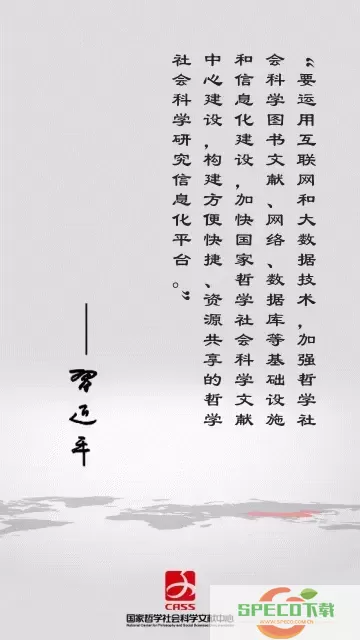 “要运用互联网和大数据技术，加强哲学社
会科学图书文献、网络、数据库等基础设施
和信息化建设，加快国家哲学社会科学文献
中心建设，构建方便快捷、资源共享的哲学
社会科学研究信息化平台。”
——习近平
CASS
国家哲学社会科学文献中心
National Center for Philosophy and Social Sciences Documentation
SPECO下载